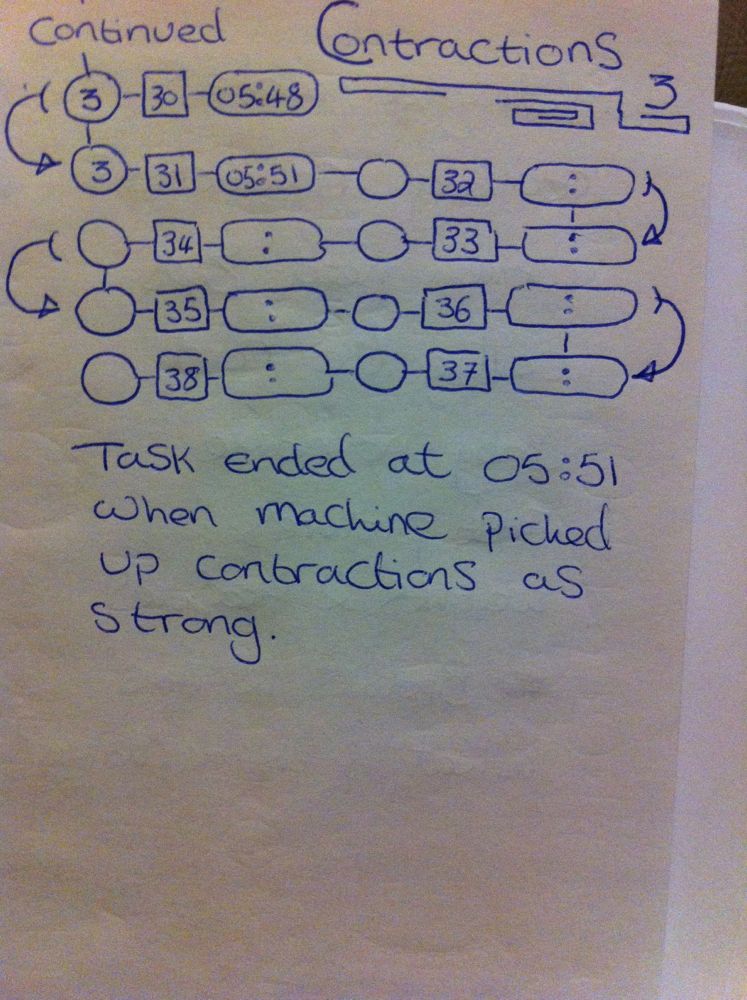 Continued Contractions
3 30 05:48 3
3 31 05:51 32 :
34 : 33 :
35 : 36 :
38 : 37 :
Task ended at 05:51
when machine picked
up contractions as
strong.